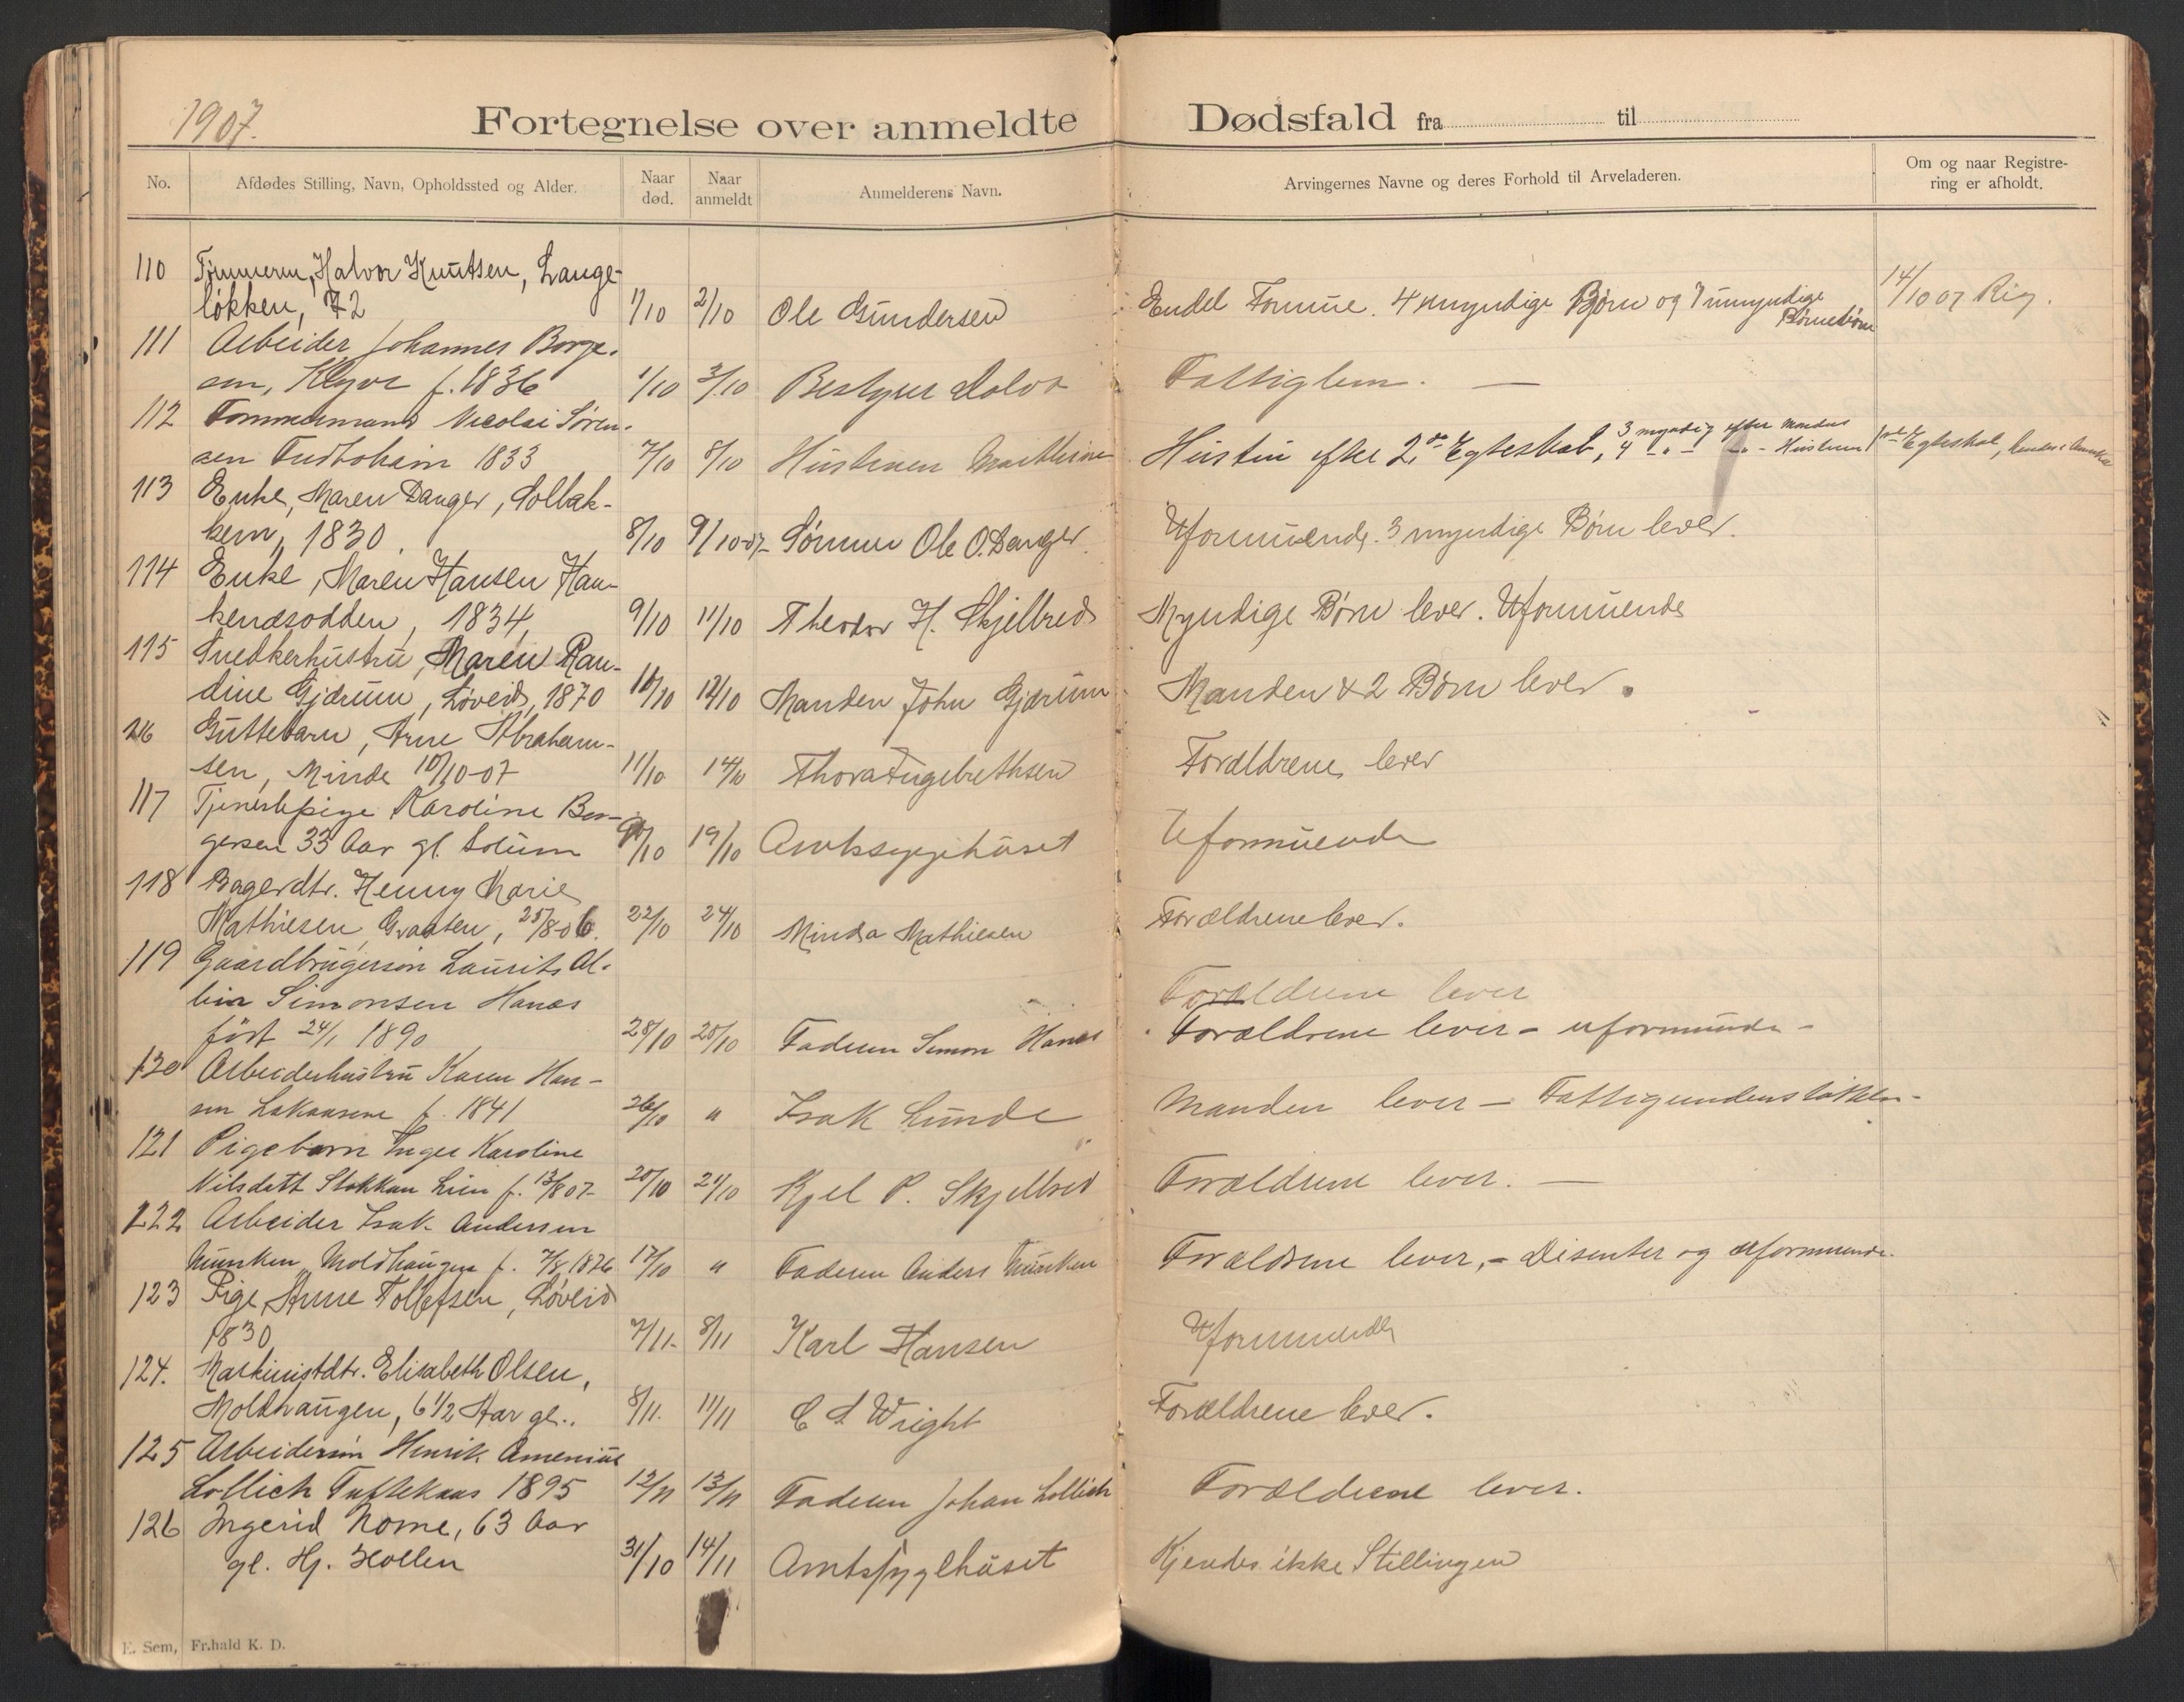 1907.
Fortegnelse over anmeldte Dødsfald fra til
No.
Afdødes Stilling, Navn, Opholdssted og Alder.
Naar død.
Naar anmeldt
Anmelderens Navn.
Arvingernes Navne og deres Forhold til Arveladeren.
Om og naar Registrering er afholdt.
110 Tømmerm, Halvor Knutsen, Lange-
løkken, 72 1/10 2/10 Ole Gundersen Endel Formue. 4 umyndige Børn og 7 umyndige Børnebørn 14/10 07 Rig.
111 Arbeider Johannes Borge-
sen, Klyve f. 1836 1/10 3/10 Bestyrer Dolva Fattiglem. —
112 Tømmermand Nicolai Søren-
sen 1833 7/10 8/10 Hustruen Hustru efter 2de Egteskab, 3 myndig efter Mandens 4 -„- -„- Hustrues 1ste Egteskab,
113 Enke, Maren Danger, Solbak-
ken, 1830 8/10 9/10-07- Sønnen Ole O. Danger Uformuende. 3 myndige Børn lever.
114 Enke, Maren Hansen Han-
kenæsodden, 1834 9/10 11/10 Theodor H. Skjelbred Myndige Børn lever. Uformuende
115 Snedkerhustru, Maren Ran-
dine Gjærum, Løveid, 1870 10/10 12/10 Manden John Gjærum Manden & 2 Børn lever.
116 Guttebarn, Arne Abraham-
sen, Minde 10/10-07 11/10 14/10 Thora Ingebrethsen Forældrene lever
117 Tjenestepige Karoline Bor-
gersen 33 Aar gl. Solum /10 19/10 Amtssygehuset Uformuende
118 Bagerdtr. Henny Marie
Mathiesen, Graaten, 25/8-06. 22/10 24/10 Minda Mathiesen Forældrene lever.
119 Gaardbrugersøn Laurits Al-
bin Simonsen Hanæs Forældrene lever
født 24/1 1890 28/10 28/10 Faderen Simon Hanæs Forældrene lever - uformuende -
120 Arbeiderhustru Karen Han-
sen f. 1841 26/10 „ Isak Lunde Manden lever - Fattigunderstøttelse -
121 Pigebarn Inger Karoline
Nilsdatt Stokkan Lien f. 13/8 07- 20/10 29/10 Kjel P. Skjelbred Forældrene lever. —
122 Arbeider Isak Andersen
Munken Moldhaugen f. 7/8 1876 17/10 „ Faderen Anders Munken Forældrene lever, - Disenter og uformuende.
123 Pige, Anne Tollefsen, Løveid
1830 7/11- 8/11 Karl Hansen Uformuende
124. Maskinistdtr. Elisabeth Olsen,
Moldhaugen, 6 1/2 Aar gl.. 8/11. 11/11 C S Wright Forældrene lever.
125 Arbeidersøn Henrik Amenius
Lollich Tuftekaas 1895 12/11 13/11 Faderen Johan Lollich Forældrene lever.
126 Ingerid Nome, 63 Aar
gl. Hj. Hollen 31/10 14/11 Amtssygehuset Kjendes ikke Stillingen
E. Sem, Fr.hald K. D.